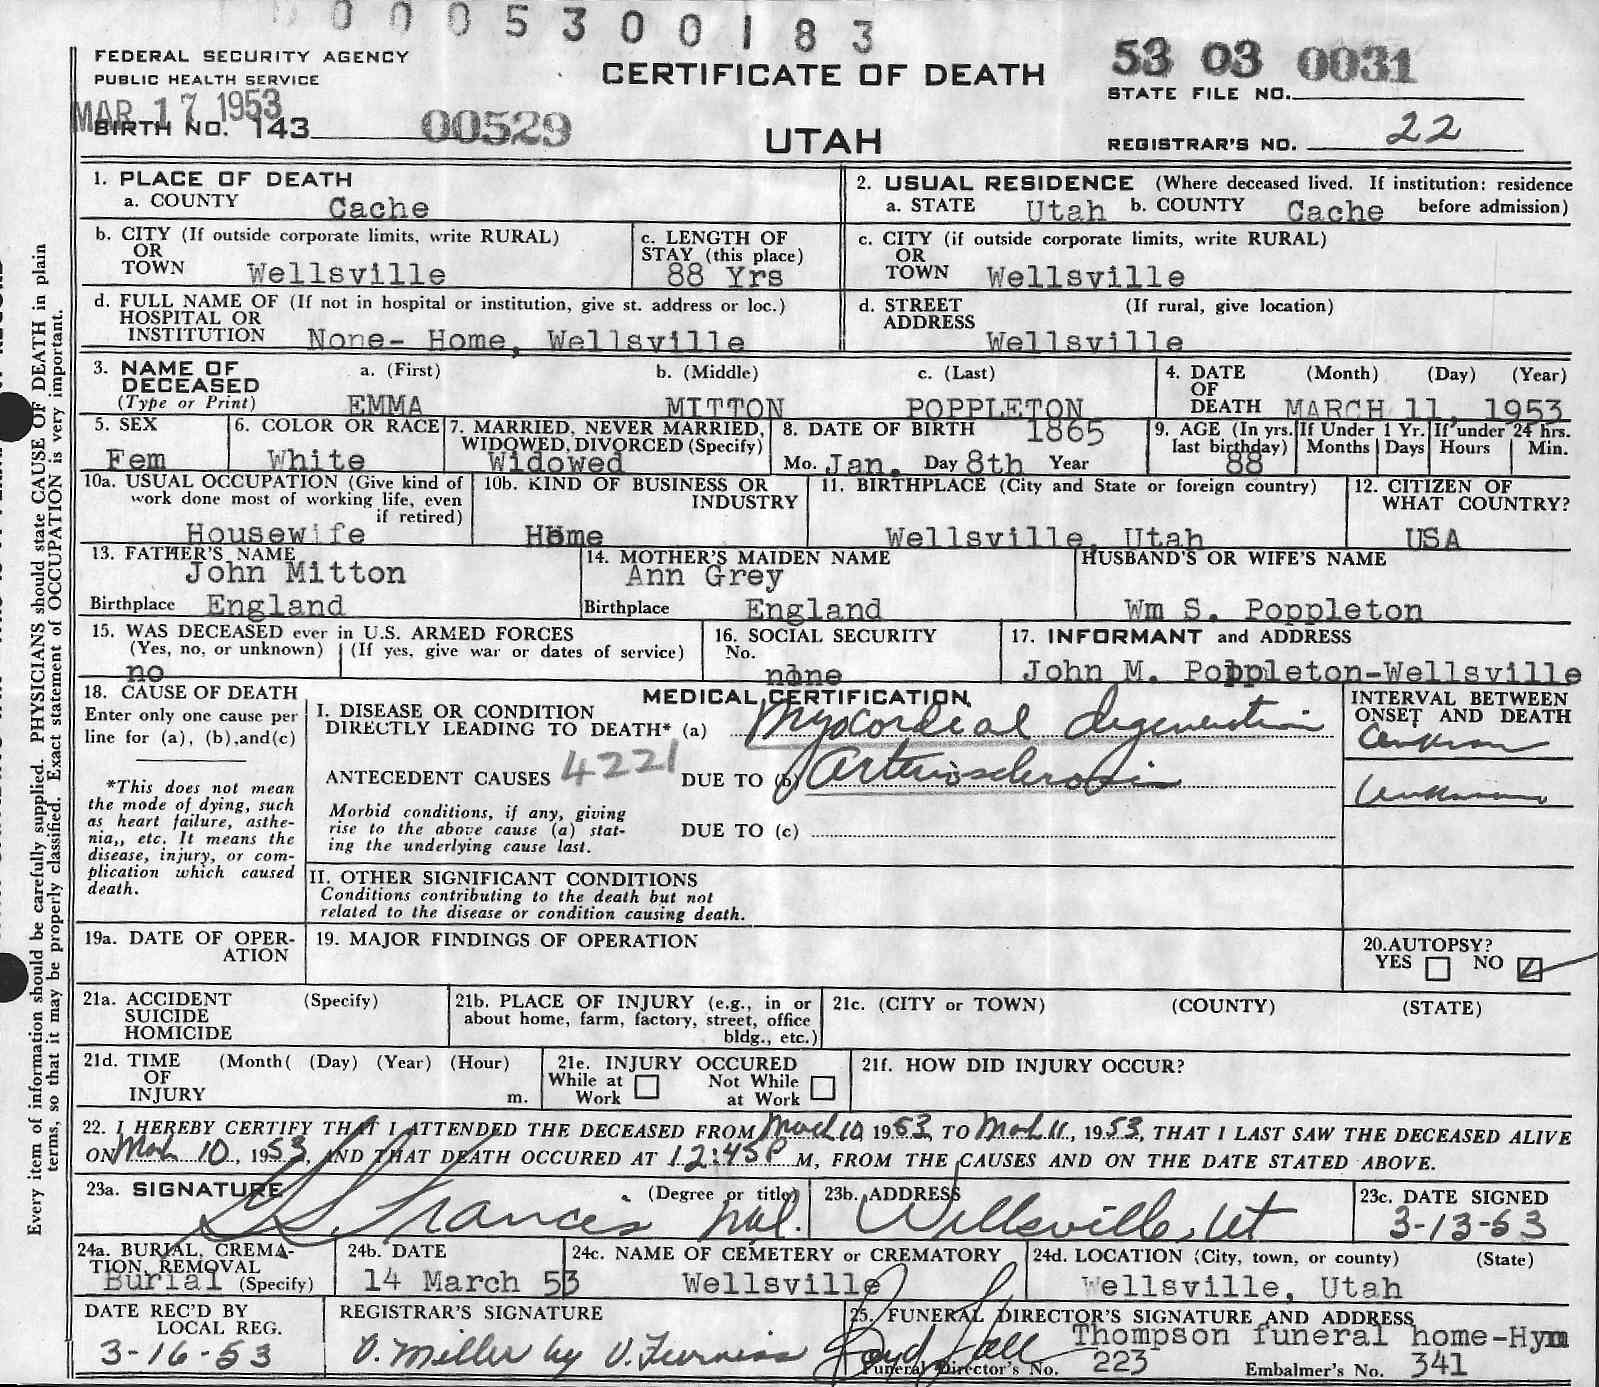 0005300183
FEDERAL SECURITY AGENCY
PUBLIC HEALTH SERVICE
MAR 17 1953
BIRTH NO. 143
00529
CERTIFICATE OF DEATH
UTAH
53 03 0031
STATE FILE NO.
REGISTRAR'S NO. 22
Every item of information should be carefully supplied. PHYSICIANS should state CAUSE OF DEATH in plain
terms, so that it may be properly classified. Exact statement of OCCUPATION is very important.
1. PLACE OF DEATH
a. COUNTY Cache
2. USUAL RESIDENCE (Where deceased lived. If institution: residence
a. STATE Utah b. COUNTY Cache before admission)
b. CITY (If outside corporate limits, write RURAL)
OR
TOWN Wellsville
c. LENGTH OF
STAY (this place)
88 Yrs
c. CITY (if outside corporate limits, write RURAL)
OR
TOWN Wellsville
d. FULL NAME OF (If not in hospital or institution, give st. address or loc.)
HOSPITAL OR
INSTITUTION None- Home, Wellsville
d. STREET (If rural, give location)
ADDRESS
Wellsville
3. NAME OF a. (First) b. (Middle) c. (Last)
DECEASED
(Type or Print) EMMA MITTON POPPLETON
4. DATE (Month) (Day) (Year)
OF
DEATH MARCH 11, 1953
5. SEX
Fem
6. COLOR OR RACE
White
7. MARRIED, NEVER MARRIED,
WIDOWED, DIVORCED (Specify)
Widowed
8. DATE OF BIRTH 1865
Mo. Jan. Day 8th Year
9. AGE (In yrs.
last birthday)
88
If Under 1 Yr.
Months Days
If under 24 hrs.
Hours Min.
10a. USUAL OCCUPATION (Give kind of
work done most of working life, even
if retired)
Housewife
10b. KIND OF BUSINESS OR
INDUSTRY
Home
11. BIRTHPLACE (City and State or foreign country)
Wellsville, Utah
12. CITIZEN OF
WHAT COUNTRY?
USA
13. FATHER'S NAME
John Mitton
Birthplace England
14. MOTHER'S MAIDEN NAME
Ann Grey
Birthplace England
HUSBAND'S OR WIFE'S NAME
Wm S. Poppleton
15. WAS DECEASED ever in U.S. ARMED FORCES
(Yes, no, or unknown) (If yes, give war or dates of service)
no
16. SOCIAL SECURITY
No.
none
17. INFORMANT and ADDRESS
John M. Poppleton-Wellsville
18. CAUSE OF DEATH
Enter only one cause per
line for (a), (b),and(c)
*This does not mean
the mode of dying, such
as heart failure, asthe-
nia,, etc. It means the
disease, injury, or com-
plication which caused
death.
MEDICAL CERTIFICATION
I. DISEASE OR CONDITION
DIRECTLY LEADING TO DEATH* (a) Myocordial degeneration
ANTECEDENT CAUSES 4221 DUE TO (b) Arteriosclerosis
Morbid conditions, if any, giving
rise to the above cause (a) stat-
ing the underlying cause last.
DUE TO (c)
INTERVAL BETWEEN
ONSET AND DEATH
Unknown
Unknown
II. OTHER SIGNIFICANT CONDITIONS
Conditions contributing to the death but not
related to the disease or condition causing death.
19a. DATE OF OPER-
ATION
19. MAJOR FINDINGS OF OPERATION
20.AUTOPSY?
YES NO
21a. ACCIDENT (Specify)
SUICIDE
HOMICIDE
21b. PLACE OF INJURY (e.g., in or
about home, farm, factory, street, office
bldg., etc.)
21c. (CITY or TOWN) (COUNTY) (STATE)
21d. TIME (Month( (Day) (Year) (Hour)
OF
INJURY m.
21e. INJURY OCCURED
While at Not While
Work at Work
21f. HOW DID INJURY OCCUR?
22. I HEREBY CERTIFY THAT I ATTENDED THE DECEASED FROM March 10, 1953, TO Mch 11, 1953, THAT I LAST SAW THE DECEASED ALIVE
ON Mch 10, 1953, AND THAT DEATH OCCURED AT 12:45P M, FROM THE CAUSES AND ON THE DATE STATED ABOVE.
23a. SIGNATURE (Degree or title)
Francis M.D.
23b. ADDRESS
Wellsville, Ut
23c. DATE SIGNED
3-13-53
24a. BURIAL, CREMA-
TION, REMOVAL
Burial (Specify)
24b. DATE
14 March 53
24c. NAME OF CEMETERY or CREMATORY
Wellsville
24d. LOCATION (City, town, or county) (State)
Wellsville, Utah
DATE REC'D BY
LOCAL REG.
3-16-53
REGISTRAR'S SIGNATURE
O. Miller by V. Furniss
25. FUNERAL DIRECTOR'S SIGNATURE AND ADDRESS
Boyd Hall Thompson funeral home-Hym
Funeral Director's No. 223 Embalmer's No. 341